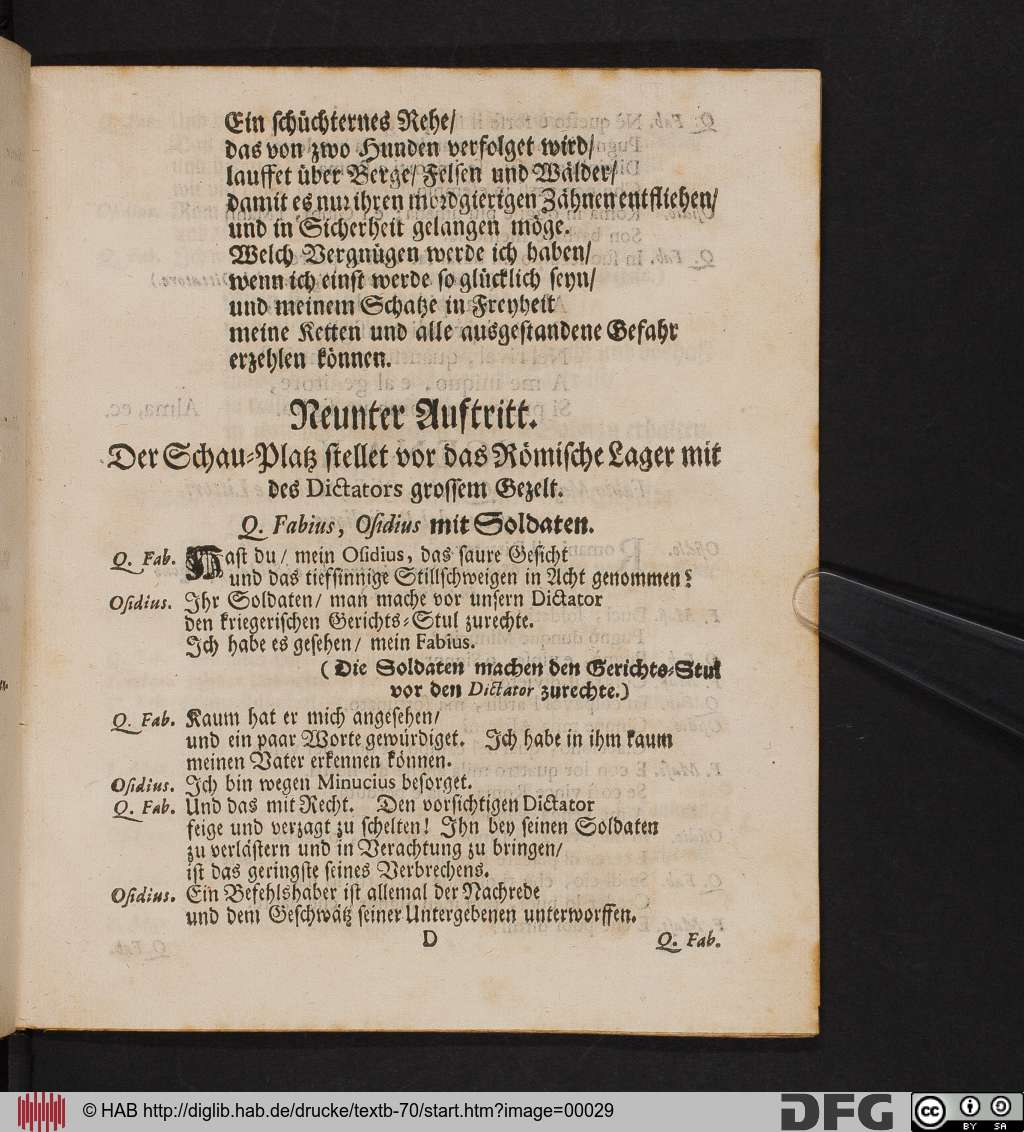 Ein schüchternes Rehe/
das von zwo Hunden verfolget wird/
lauffet über Berge/ Felsen und Wälder/
damit es nur ihren mordgierigen Zähnen entfliehen/
und in Sicherheit gelangen möge.
Welch Vergnügen werde ich haben/
wenn ich einst werde so glücklich seyn/
und meinem Schatze in Freyheit
meine Ketten und alle ausgestandene Gefahr
erzehlen können.
Neunter Auftritt.
Der Schau-Platz stellet vor das Römische Lager mit
des Dictators grossem Gezelt.
Q. Fabius, Osidius mit Soldaten.
Q. Fab. Hast du/ mein Osidius, das saure Gesicht
und das tiefsinnige Stillschweigen in Acht genommen?
Osidius. Ihr Soldaten/ man mache vor unsern Dictator
den kriegerischen Gerichts-Stul zurechte.
Ich habe es gesehen/ mein Fabius.
(Die Soldaten machen den Gerichts-Stul
vor den Dictator zurechte.)
Q. Fab. Kaum hat er mich angesehen/
und ein paar Worte gewürdiget. Ich habe in ihm kaum
meinen Vater erkennen können.
Osidius. Ich bin wegen Minucius besorget.
Q. Fab. Und das mit Recht. Den vorsichtigen Dictator
feige und verzagt zu schelten! Ihn bey seinen Soldaten
zu verlästern und in Verachtung zu bringen/
ist das geringste seines Verbrechens.
Osidius. Ein Befehlshaber ist allemal der Nachrede
und dem Geschwätz seiner Untergebenen unterworffen.
D Q. Fab.
© HAB http://diglib.hab.de/drucke/textb-70/start.htm?image=00029
DFG
cc BY SA